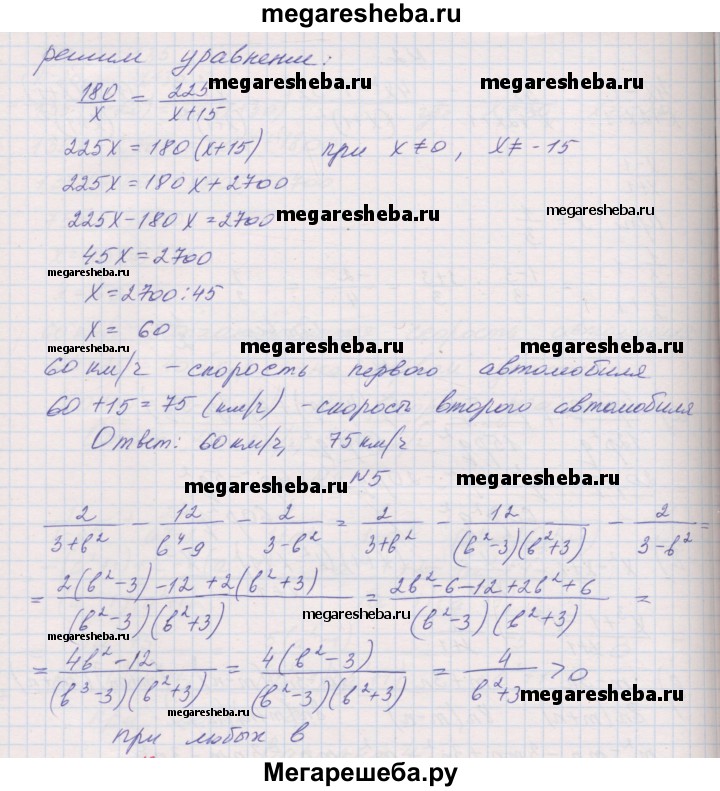 megaresheba.ru
решим уравнение:
180/x = 225/x+15
megaresheba.ru megaresheba.ru
225x = 180(x+15) при x≠0, x≠-15
225x = 180x + 2700
225x - 180x = 2700 megaresheba.ru megaresheba.ru
45x = 2700
megaresheba.ru
x = 2700:45
x = 60
megaresheba.ru megaresheba.ru megaresheba.ru
60 км/ч - скорость первого автомобиля
60 + 15 = 75 (км/ч) - скорость второго автомобиля
Ответ: 60 км/ч, 75 км/ч
N5
megaresheba.ru megaresheba.ru
2/3+в² - 12/в⁴-9 - 2/3-в² = 2/3+в² - 12/(в²-3)(в²+3) - 2/3-в² =
= 2(в²-3)-12+2(в²+3)/(в²-3)(в²+3) = 2в²-6-12+2в²+6/(в²-3)(в²+3) =
megaresheba.ru megaresheba.ru
= 4в²-12/(в³-3)(в²+3) = 4(в²-3)/(в²-3)(в²+3) = 4/в²+3 > 0
megaresheba.ru megaresheba.ru
при любых в
Мегарешеба.ру